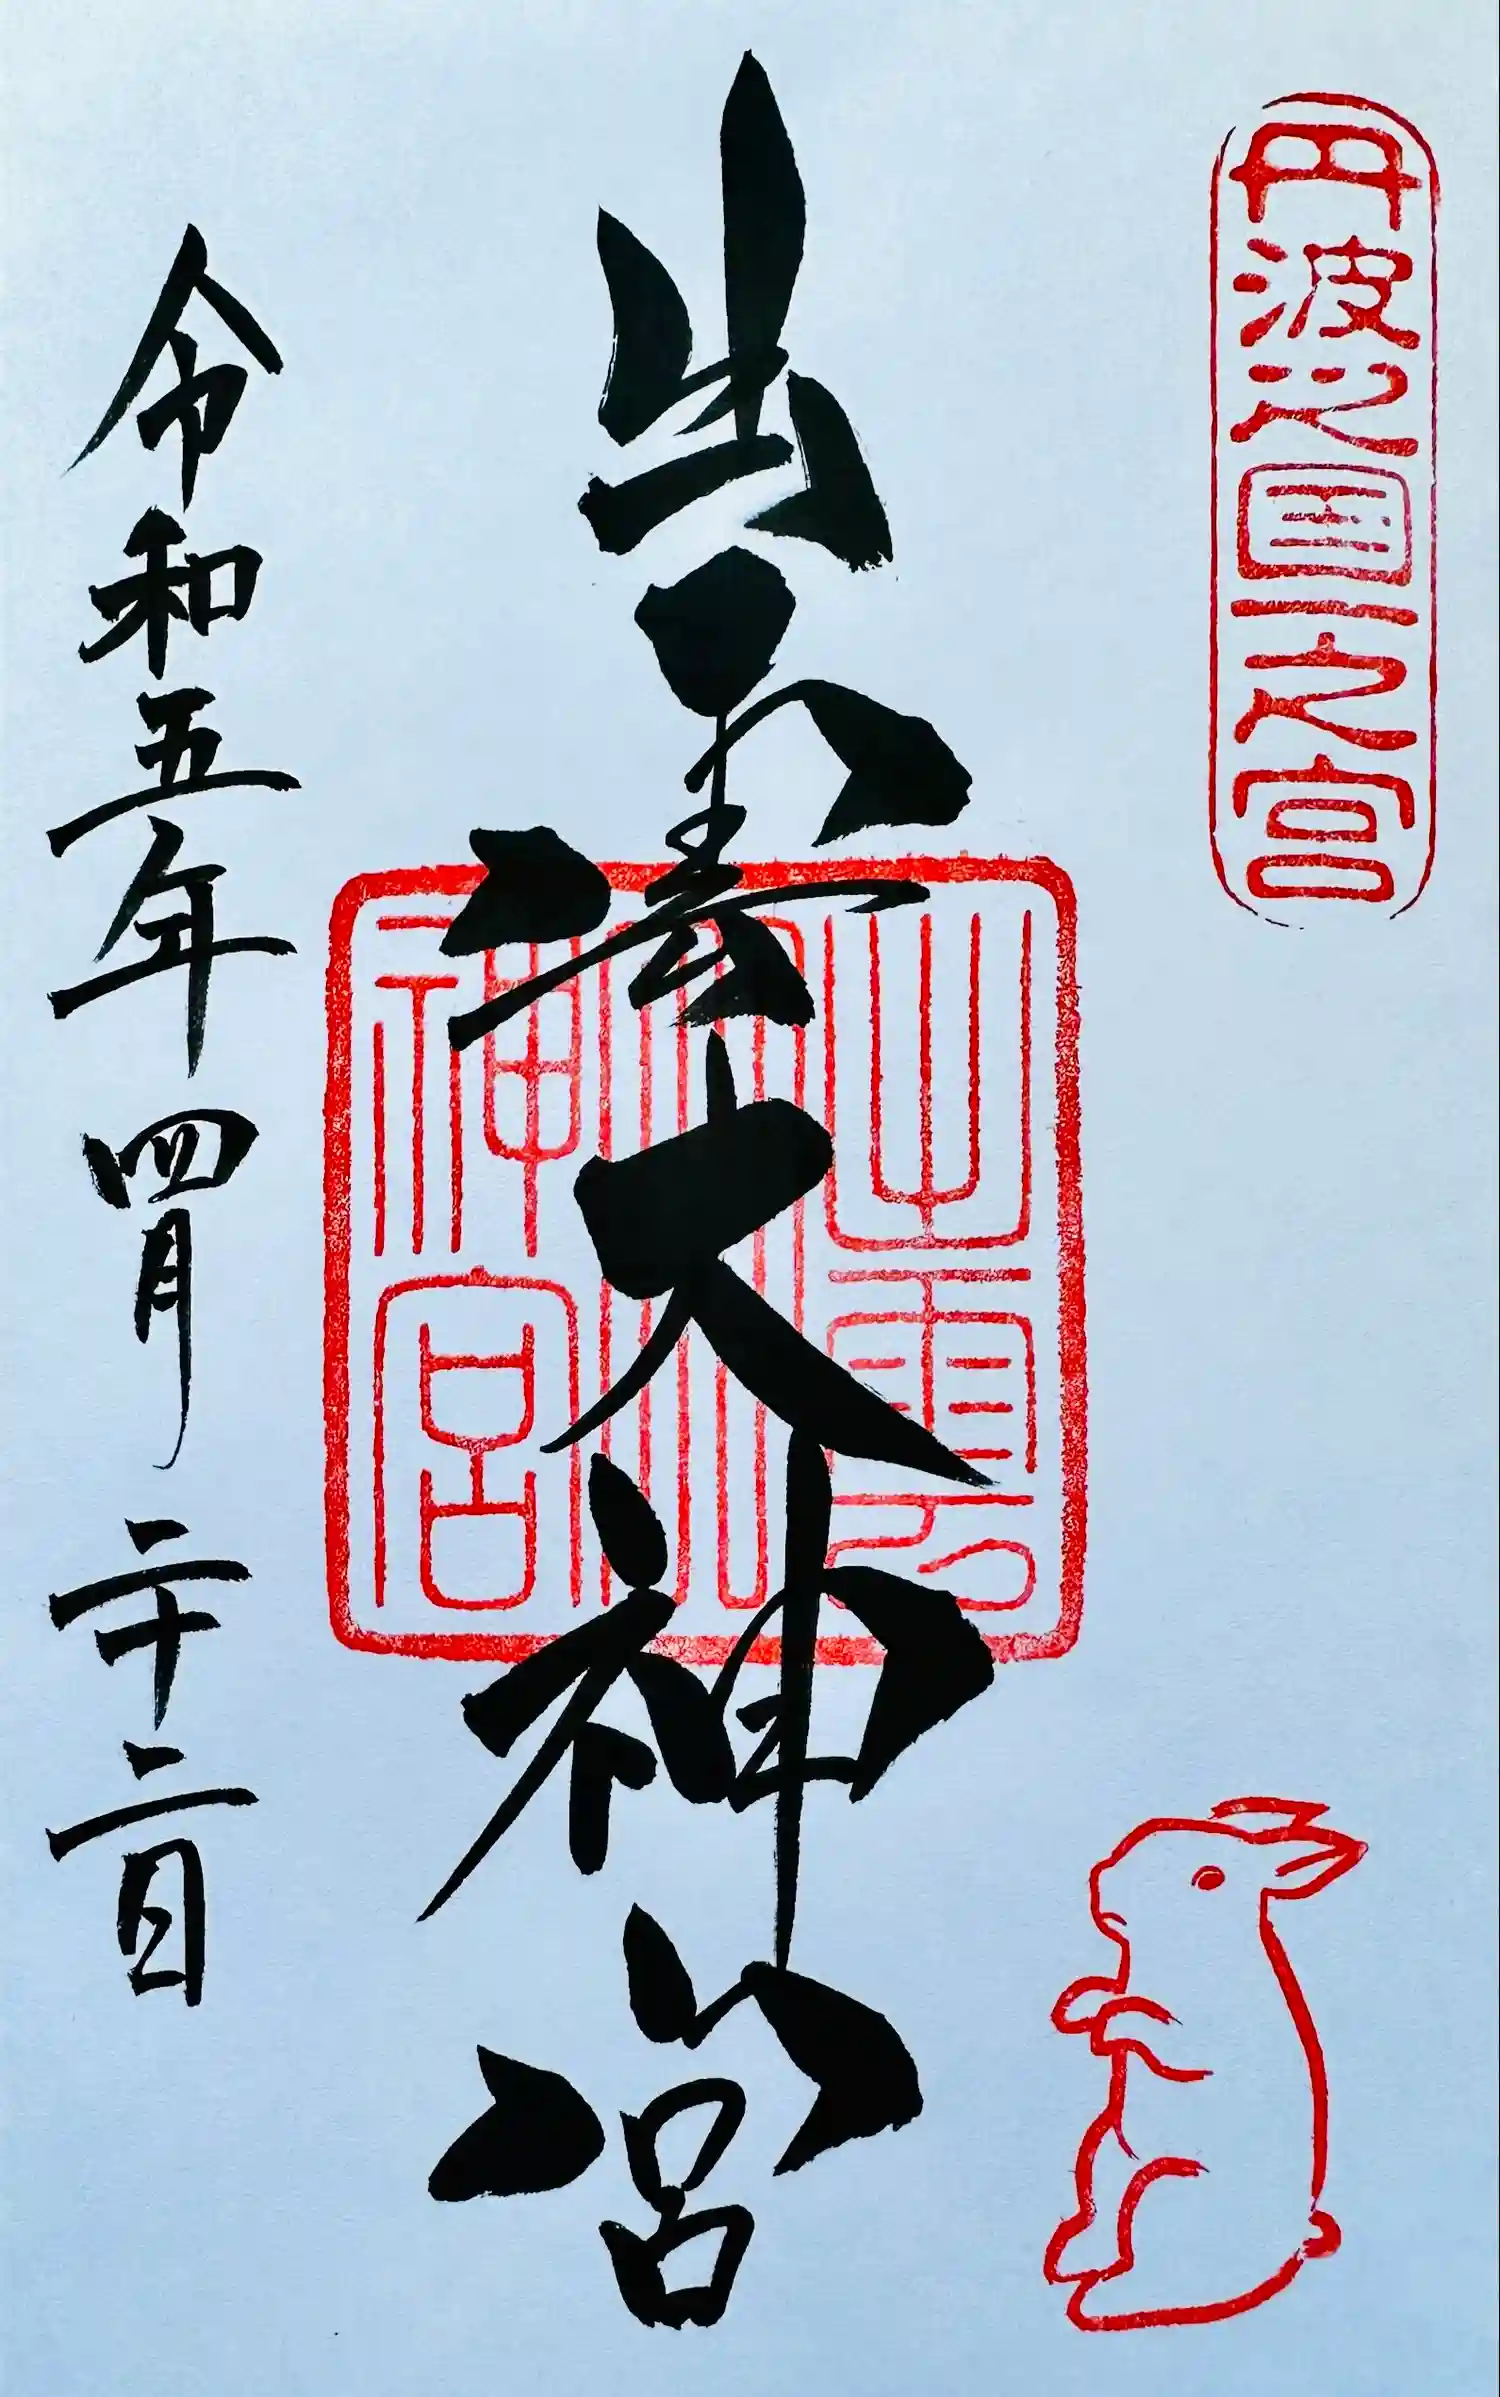 丹波之国一之宮
出雲大神宮
出雲大神宮
令和五年四月二十二日